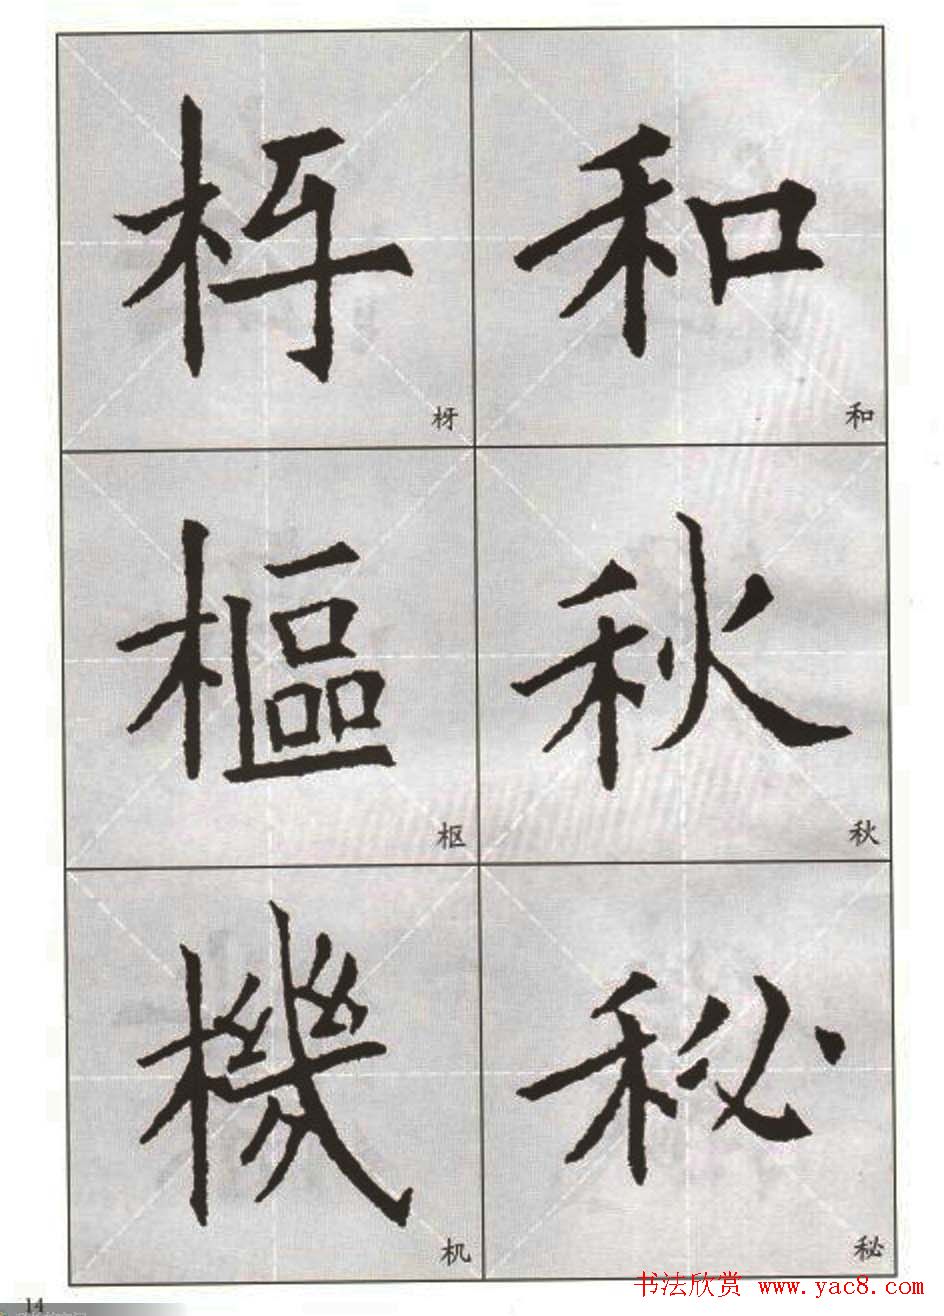 枒 和
枒 和
樞 秋
枢 秋
機 秘
机 秘
书法欣赏 www.yac8.com
14